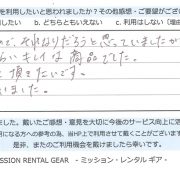 を利用したいと思われましたか？その他感想・ご要望がござ
b. どちらともいえない c. 利用はしない（理由
で、それなりだろうと思っていましたが
らいキレイな商品でした。
て頂きたいです。
いました。
ました。戴いたご感想、意見を大切に今後のサービス向上に活
る方への参考の為、御HP上で利用させて戴くことがございます
是非、またのご利用機会を戴けましたら幸いです。
SSION RENTAL GEAR - ミッション・レンタル ギア -